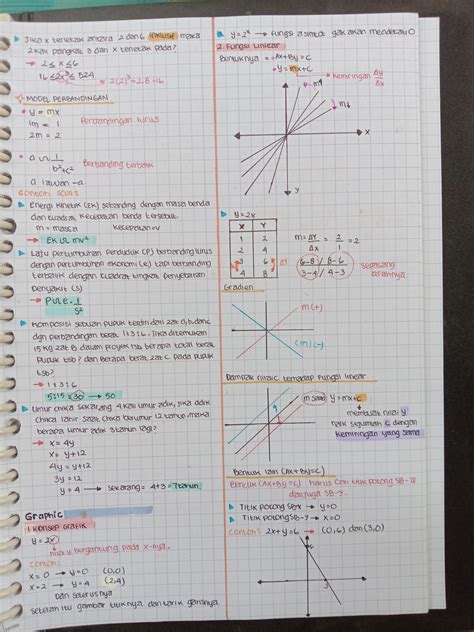 Jika x terletak antara 2 dan 6 inklusif maka
2 kali pangkat 3 dari x terletak pada?
→ 2 ≤ x ≤ 6
16 ≤ 2x³ ≤ 524
* 2(2)³ = 2.8 = 16
MODEL PERBANDINGAN
• y = mx
1m = 1
2m = 2
Perbandingan lurus
• a ∞ 1/(b²+c²)
Berbanding terbalik
a lawan -a
Contoh soal:
Energi kinetik (EK) sebanding dengan masa benda
dan kuadrat kecepatan benda tersebut
m = massa kecepatan = v
→ EK ∞ mv²
Laju pertumbuhan penduduk (P) berbanding lurus
dengan pertumbuhan ekonomi (E) tapi berbanding
terbalik dengan kuadrat tingkat penyebaran
penyakit (S)
→ P ∞ E . 1/S²
Komposisi sebuah pupuk terdiri dari zat a, b, dan c
dgn perbandingan berat 1:3:6. Jika ditemukan
15 kg zat B dalam proyek tsb berapa total berat
pupuk tsb? dan berapa berat zat C pada pupuk
tsb?
→ 1:3:6
5:15:30 → 50
Umur chika sekarang 4 kali umur adik, jika adik
chika lahir saat chika berumur 12 tahun, maka
berapa umur adik 3 tahun lagi?
→ x = 4y
x = y + 12
4y = y + 12
3y = 12
y = 4 → sekarang = 4+3 = 7 tahun
Graphic
1 Konsep Grafik
y = 2x
nilai y bergantung pada x-nya
contoh:
x = 0 → y = 0 (0,0)
x = 2 → y = 4 (2,4)
Dan seterusnya
setelah itu gambar titiknya dan tarik garisnya
y = 2ˣ → fungsi asimtot gak akan mendekati 0
2 Fungsi linear
Bentuknya = Ax + By = C
• y = mx + c
kemiringan Δy/Δx
m↑
m↓
x
y
y = 2x
x y
1 2
2 4
3 6
4 8
Δy
m = Δy/Δx = 2/1 = 2
6-8 / 8-6
3-4 / 4-3
Gradien
m (+)
(m) (-)
Dampak nilai c terhadap fungsi linear
m sama
y = mx + c
membuat nilai y
naik sejumlah c dengan
kemiringan yang sama
Bentuk lain (Ax + By = C)
Bentuk (Ax + By = C) harus cari titik potong SB-x
dan juga SB-y.
Titik potong SB-x → y = 0
Titik potong SB-y → x = 0
contoh: 2x + y = 6 → (0,6) dan (3,0)
6
3